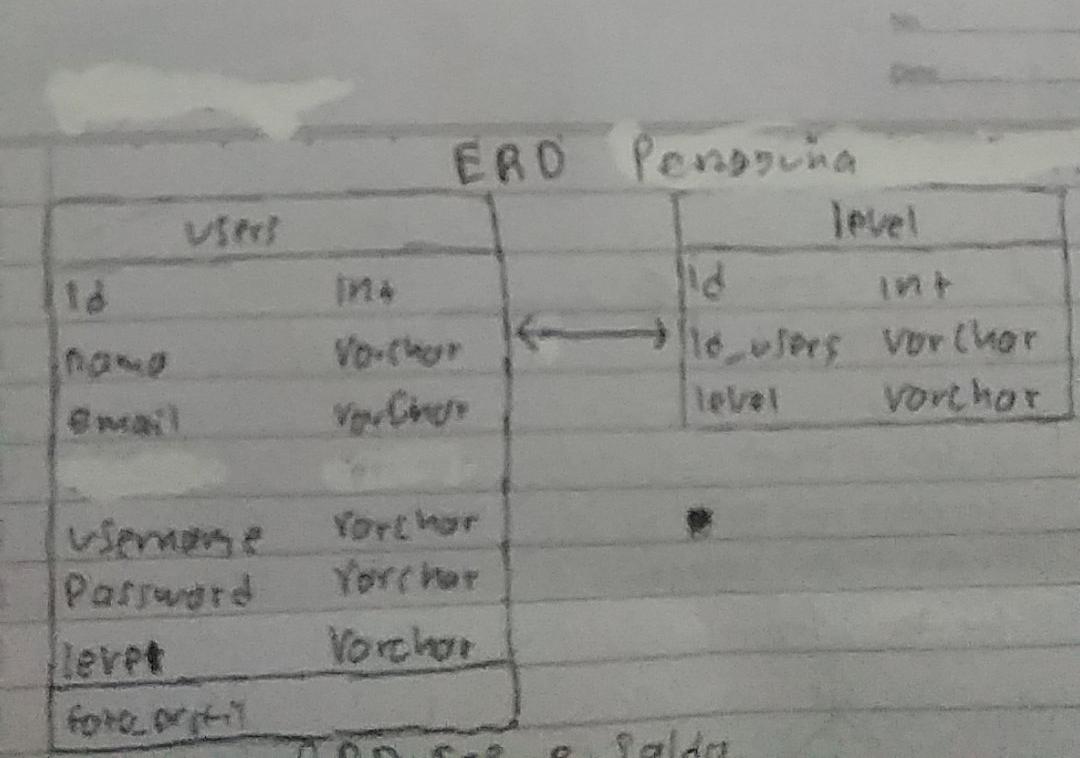 No
Date
ERD Pengguna
users
id int
nama varchar
email varchar
username varchar
Password varchar
level varchar
foto_profil
level
id int
id_users varchar
level varchar